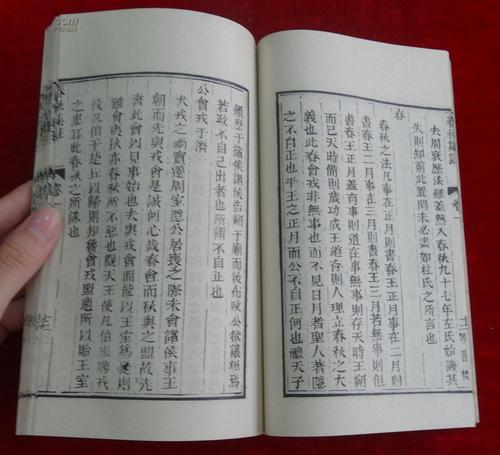 春秋集註 卷一
夫周衰歷法經差然入春秋九十七年左氏始譏其
失則知前此置閏未必盡如杜氏之所言也
春
春秋之法凡事在正月則書春王正月事在二月則
書春王二月事在三月則書春王三月若無事則但
書春王正月蓋有事則道在事無事則存天時王朔
而已天時備則歲功成王道存則人理立春秋之大
義也此春會戎非無事也而不見日月者聖人著隱
之不自正也平王之正月而公不自正何也禮天子
頒歷于諸侯諸侯告朔于廟而後布政公欲讓桓焉
若政不自己出者也所謂不自正也
公會戎于潛
犬戎之 實遷周室隱公居喪之際未會諸侯事王
朝而先與戎會是誠何心哉春會而秋與之盟故先
書此會以見事始也夫與戎會而能以王室爲 則
雖會夷狄亦春秋所不惡也觀天王使凡伯來聘戎
伐凡伯于楚丘以歸則知 會戎盟 所以貽王室
之患耳此春秋之所誅也